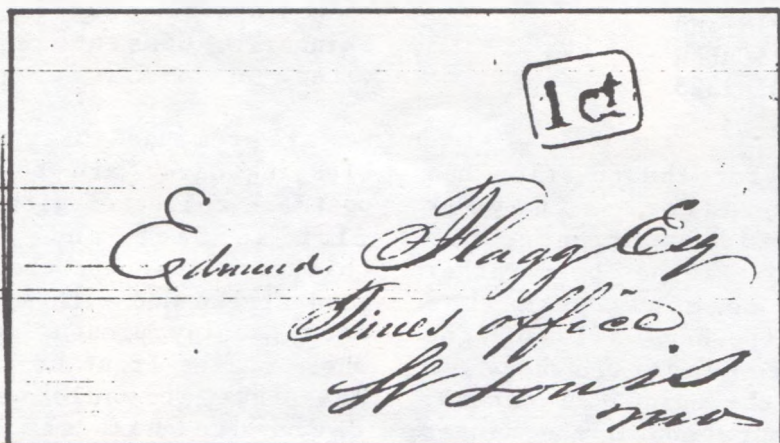 1 ct
Edmund Flagg Esq
Times office
St Louis
Mo